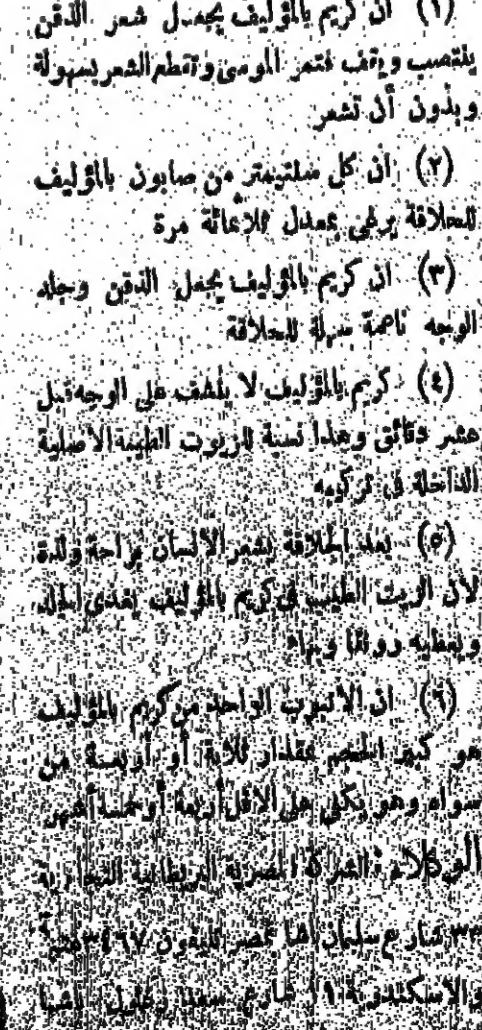 (١) ان كريم بالموليف يجعل شعر الذقن
ينتصب ويقف فتمر الموسى وتقطع الشعر بسهولة
وبدون أن تشعر
(٢) ان كل سنتيمتر من صابون بالموليف
للحلاقة يرغى بمعدل ثلاثمائة مرة
(٣) ان كريم بالموليف يجعل الذقن وجلد
الوجه ناعمة سهلة للحلاقة
(٤) كريم بالموليف لا ينشف على الوجه قبل
عشر دقائق وهذا نسبة للزيوت الطيبة الأصلية
الداخلة في تركيبه
(٥) بعد الحلاقة يشعر الانسان براحة ولذة
لأن الزيت الطيب في كريم بالموليف يغذي الجلد
ويعطيه رونقا وبهاء
(٦) ان الانبوب الواحد من كريم بالموليف
هو كبير الحجم بمقدار ثلاثة أو أربعة من
سواه وهو يكفي على الاقل أربعة أو خمسة أشهر
الوكلاء: الشركة المصرية البريطانية التجارية
٣٣ شارع سليمان باشا بمصر تليفون ٣٤٦٧
والاسكندرية ١٩ شارع سعد زغلول باشا